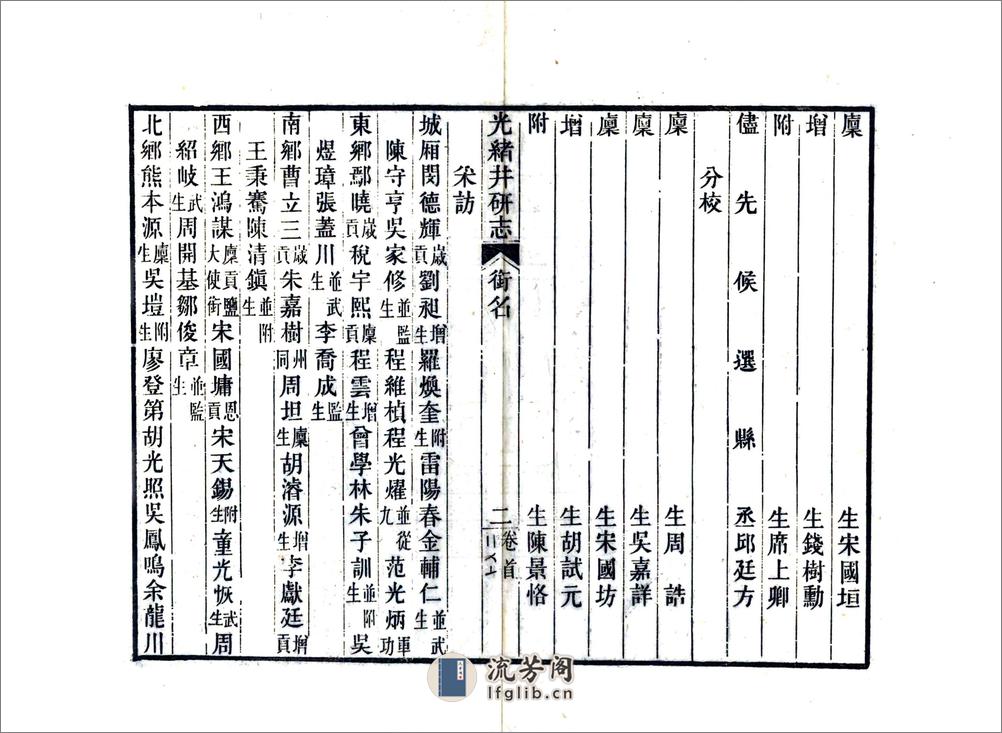 廩生宋國垣
增生錢樹勳
附生席上卿
儘先候選縣丞邱廷方
分校
廩生周誥
廩生吳嘉詳
廩生宋國坊
增生胡試元
附生陳景恪
光緒井研志 銜名 二 卷首
采訪
城厢閔德輝歲貢劉昶增生羅煥奎附生雷陽春金輔仁並武生
陳守亨吳家修並監生程維楨程光燿並從九范光炳軍功
東鄉鄢曉歲貢稅宇熙廩貢程雲增生曾學林朱子訓並附生吳
煜璋張蓋川並武生李喬成監生
南鄉曹立三歲貢朱嘉樹州同周坦廩生胡濬源增生李獻廷增貢
王秉騫陳清鎮並附生
西鄉王鴻謀廩貢鹽大使銜宋國墉恩貢宋天錫附生童光恢武生周
紹岐武生周開基鄒俊章並監生
北鄉熊本源廩生吳塏附生廖登第胡光照吳鳳鳴余龍川
流芳阁
lfglib.cn